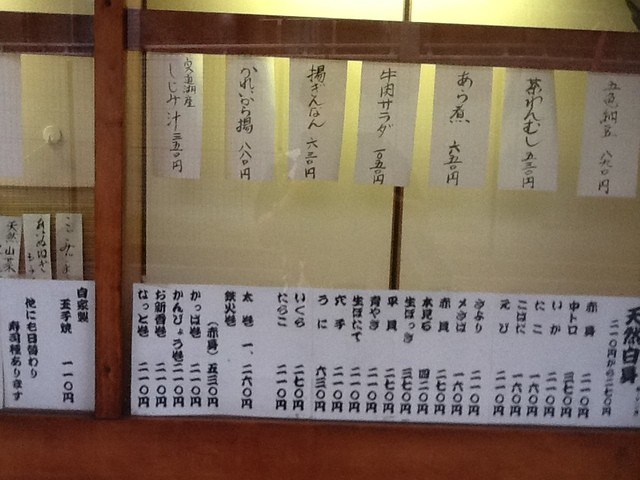 五色納豆 八八〇円
茶わんむし 五三〇円
あら煮 六五〇円
牛肉サラダ 一〇五〇円
揚ぎんなん 六三〇円
かれいから揚 八八〇円
宍道湖産
しじみ汁 三五〇円
天然山菜
天然白身
二一〇円から二七〇円
赤身 二一〇円
中トロ 三七〇円
いか 二一〇円
たこ 一六〇円
こはだ 一六〇円
えび 二一〇円
〆さば 一六〇円
赤貝 二七〇円
水見石 四二〇円
生ほっき 三七〇円
平貝 二七〇円
青やぎ 二一〇円
生ほたて 二一〇円
穴子 二一〇円
うに 六三〇円
いくら 二七〇円
たらこ 二一〇円
太巻 一、二六〇円
鉄火巻
(赤身) 五三〇円
かっぱ巻 二一〇円
かんぴょう巻 二一〇円
お新香巻 二一〇円
なっと巻 二一〇円
自家製
玉子焼 一一〇円
他にも日替わり
寿司種あります